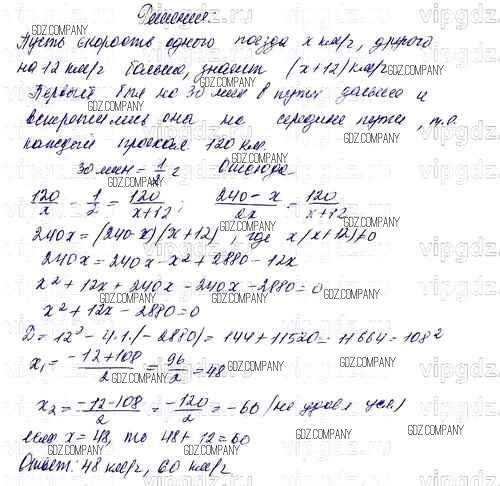 Решение:
Пусть скорость одного поезда x км/ч, другого
на 12 км/ч больше, значит (x+12) км/ч
Первый был на 30 мин в пути дольше и
встретились они на середине пути, т.е.
каждый проехал 120 км.
30 мин = 1/2 ч Отсюда
120/x - 1/2 = 120/(x+12); (240-x)/2x = 120/(x+12)
240x = (240-x)(x+12), где x(x+12)≠0
240x = 240x - x² + 2880 - 12x
x² + 12x + 240x - 240x - 2880 = 0
x² + 12x - 2880 = 0
D = 12² - 4·1·(-2880) = 144 + 11520 = 11664 = 108²
x₁ = (-12+108)/2 = 96/2 = 48
x₂ = (-12-108)/2 = -120/2 = -60 (не удовл. усл.)
если x = 48, то 48 + 12 = 60
Ответ: 48 км/ч, 60 км/ч
GDZ.COMPANY
vipgdz.ru